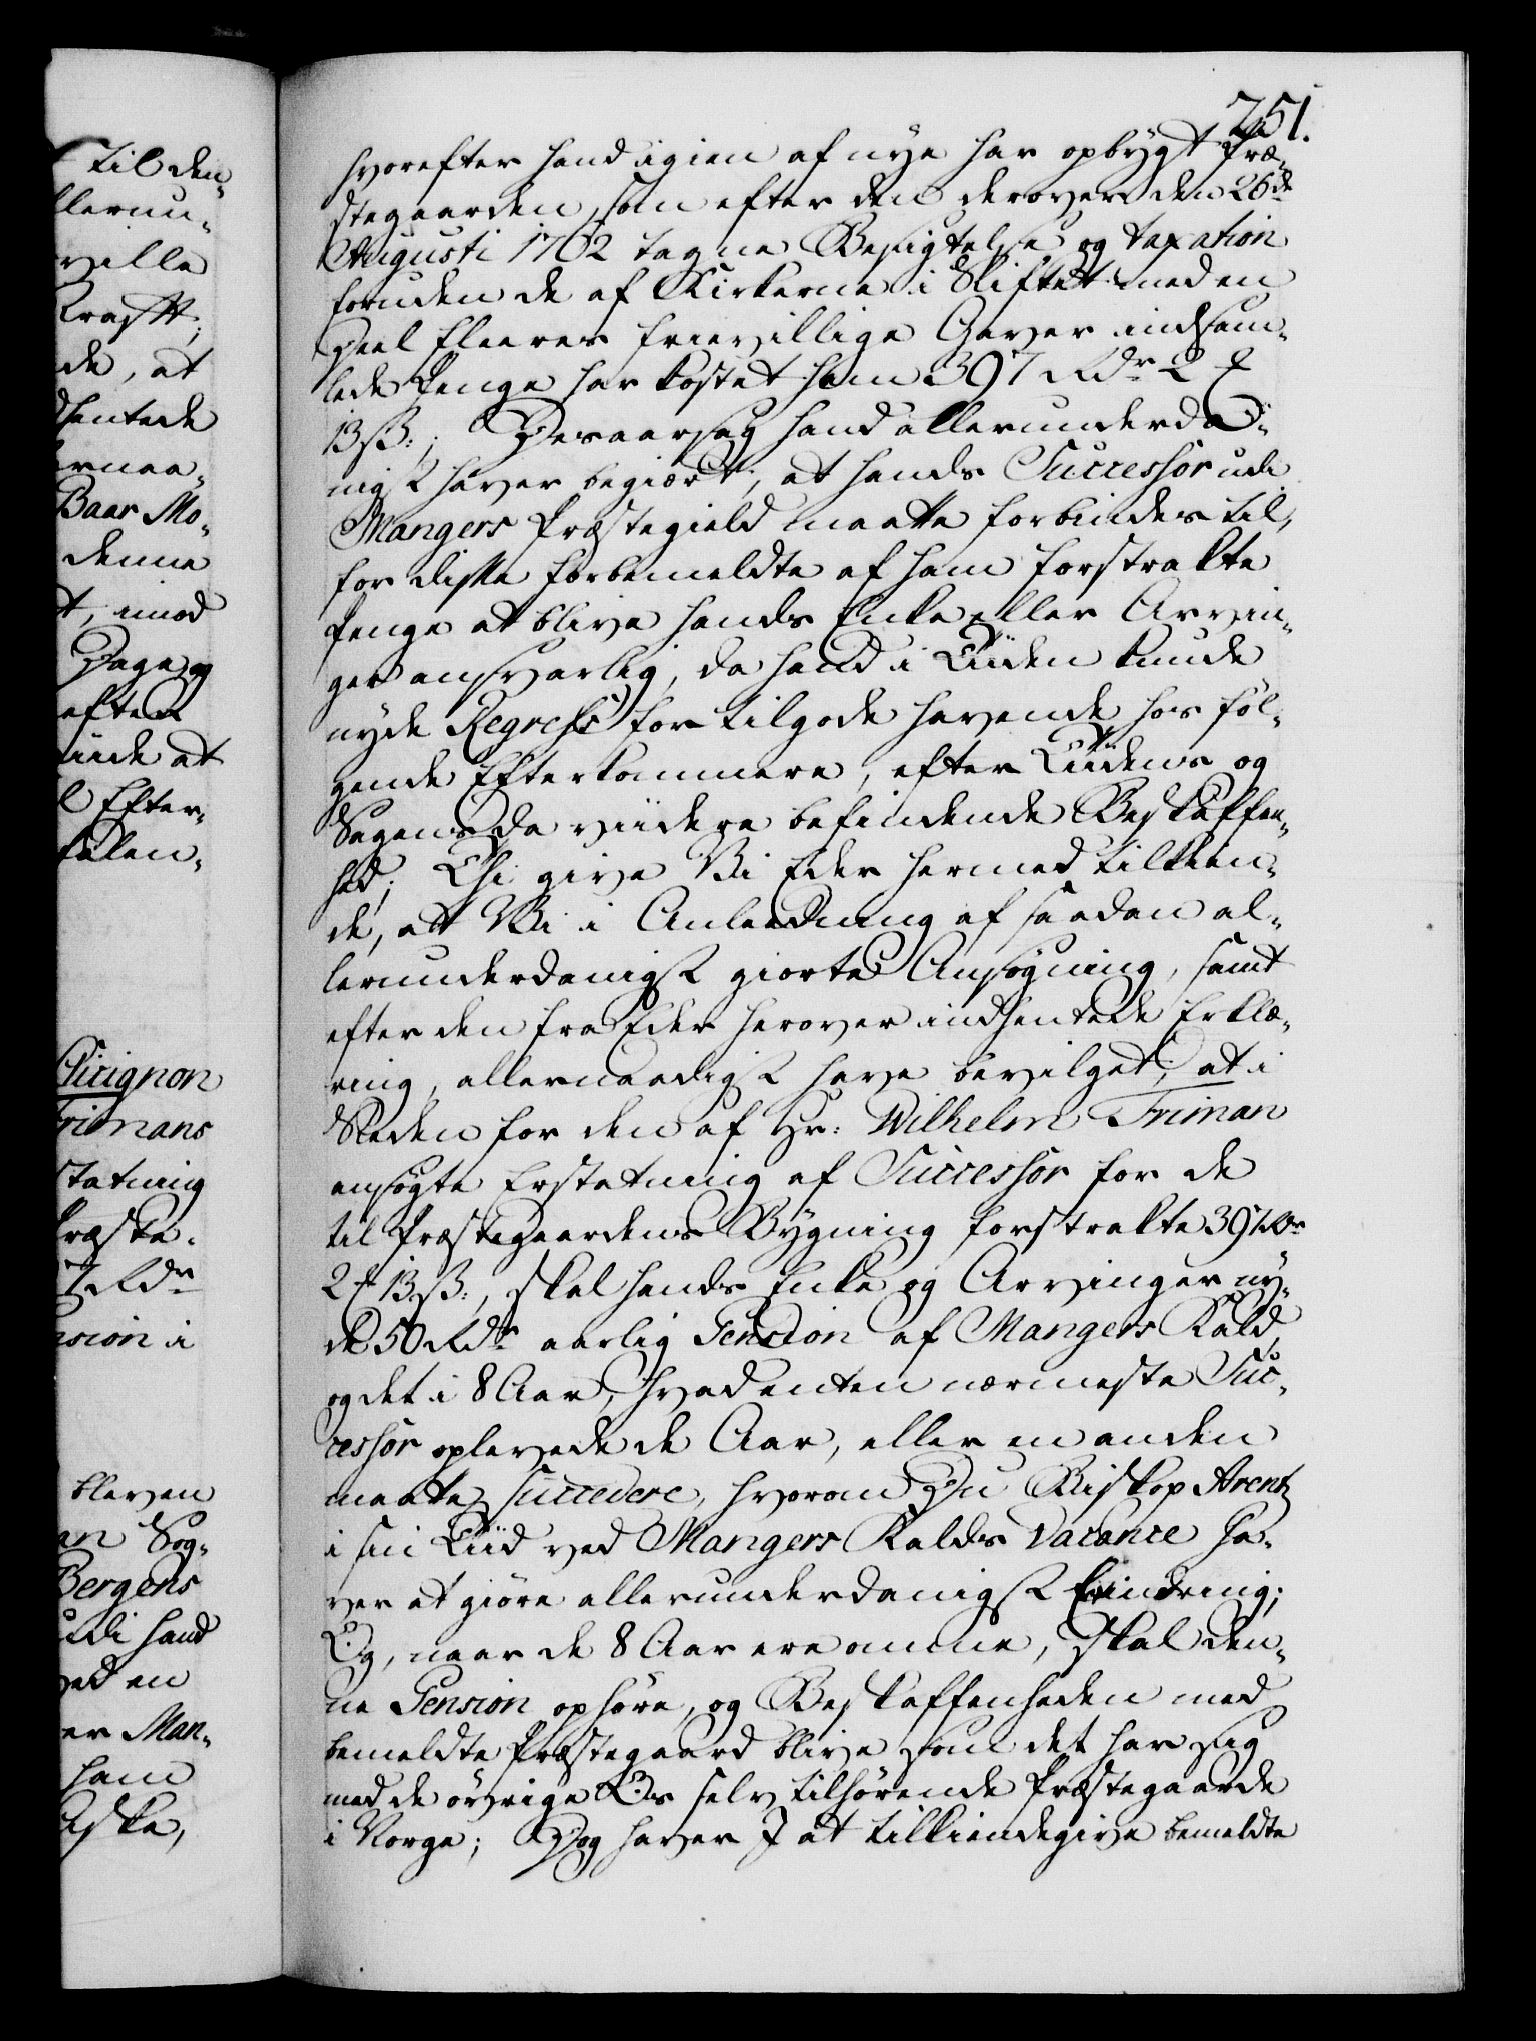 251.
hvorefter hand igien af nye har opbygt Præ-
stegaarden, som efter den derover den 26de
Augusti 1762 tagne Besigtelse og taxation
foruden de af Kirkerne i Stiftet med en
Deel fleeres frievillige Gaver indsam-
lede Penge har kostet ham 397 Rdr 2 ℔
13 ß:; Desaarsag hand allerunderda-
nigst haver begiært, at hands Successor udi
Mangers Præstegield maatte forbindes til,
for disse forbemeldte af ham forstrakte
Penge at blive hands Enke eller Arvin-
ger ansvarlig, da hand i Tiiden kunde
nyde Regress for tilgode havende hos föl-
gende Efterkommere, efter Tiidens og
Sagens da viidere befindende Beskaffen-
hed; Thi give Vi Eder hermed tilkien-
de, at Vi i Anleedning af saadan al-
lerunderdanigst giorte Ansøgning, samt
efter den fra Eder herover indhentede Erklæ-
ring, allernaadigst have bevilget, at i
Steden for den af Hr: Wilhelm Friman
ansøgte Erstatning af Successor for de
til Præstegaardens Bygning forstrakte 397 Rdr
2 ℔ 13 ß:, skal hands Enke og Arvinger ny-
de 50 Rdr aarlig Pension af Mangers Kald,
og det i 8 Aar, hvad enten nærmeste Suc-
cessor oplevede de Aar, eller en anden
maatte succedere, hvorom Du Biskop Arentz
i sin Tiid ved Mangers Kalds Vacance ha-
ver at giöre allerunderdanigst Erindring;
Og, naar de 8 Aar ere omme, skal den-
ne Pension ophöre, og Beskaffenheden med
bemeldte Præstegaard blive som det har sig
med de övrige Os selv tilhörende Præstegaarde
i Norge; Dog haver I at tilkiendegive bemeldte